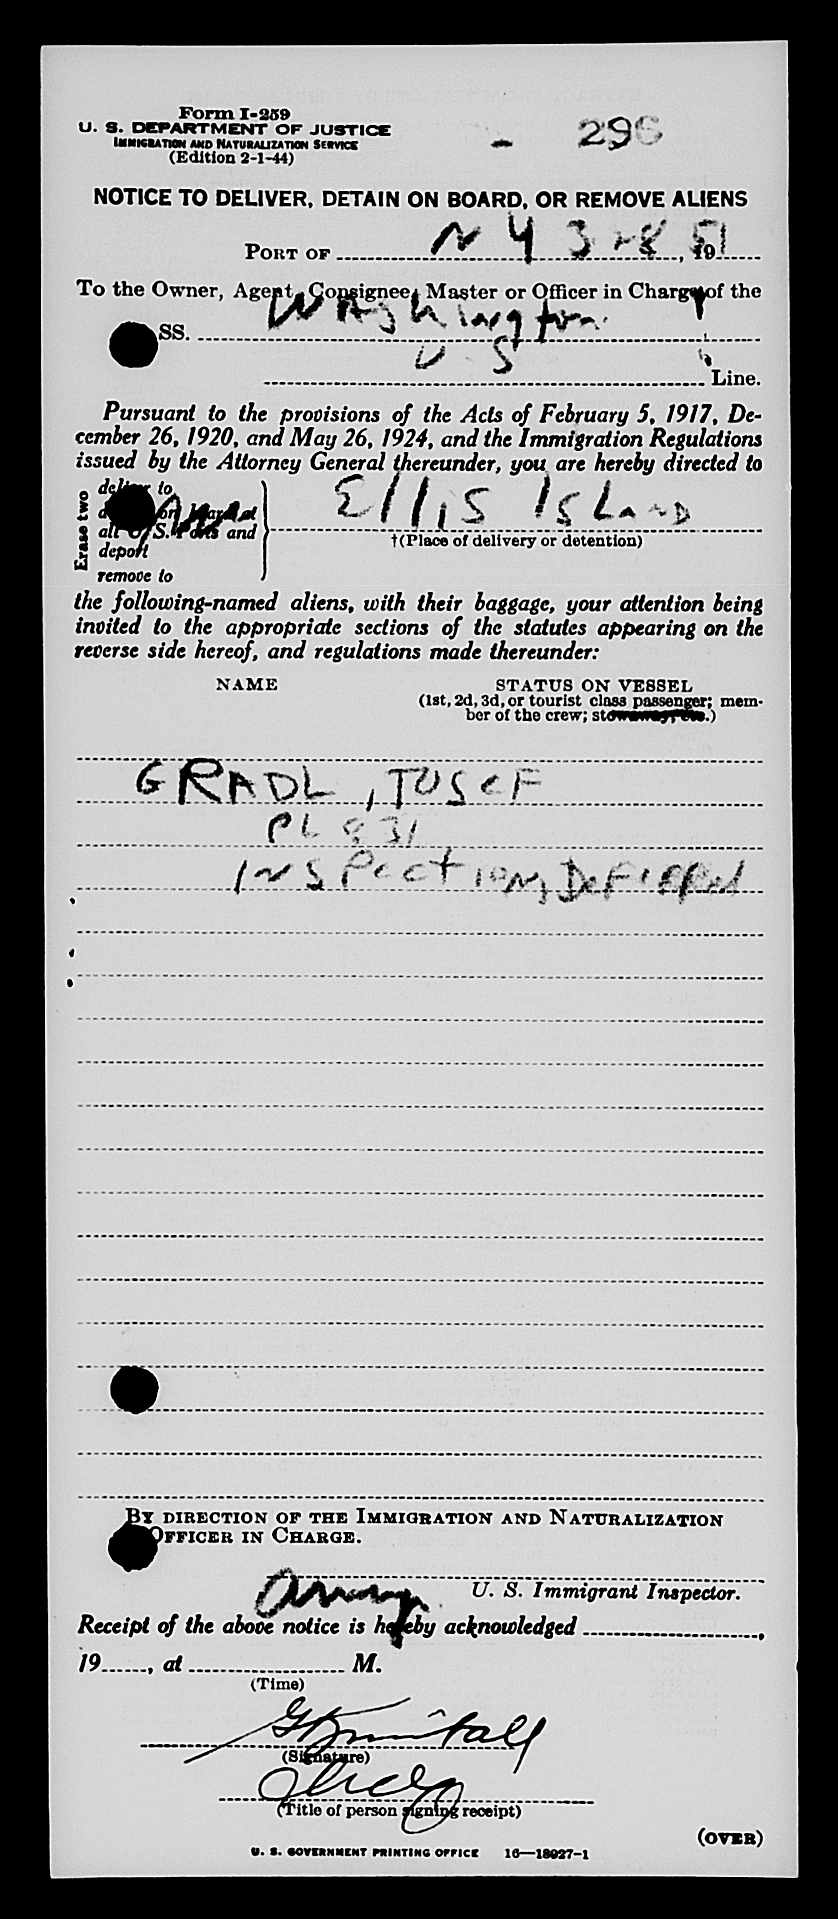 Form I-259
U. S. DEPARTMENT OF JUSTICE
IMMIGRATION AND NATURALIZATION SERVICE
(Edition 2-1-44)
296
NOTICE TO DELIVER, DETAIN ON BOARD, OR REMOVE ALIENS
PORT OF N Y 3-28, 1951
To the Owner, Agent, Consignee, Master or Officer in Charge of the
SS. Washington
U S Line.
Pursuant to the provisions of the Acts of February 5, 1917, De-
cember 26, 1920, and May 26, 1924, and the Immigration Regulations
issued by the Attorney General thereunder, you are hereby directed to
Erase two
deliver to
on board at
all U. S. Ports and
deport
remove to
Ellis Island
†(Place of delivery or detention)
the following-named aliens, with their baggage, your attention being
invited to the appropriate sections of the statutes appearing on the
reverse side hereof, and regulations made thereunder:
NAME
STATUS ON VESSEL
(1st, 2d, 3d, or tourist class passenger; mem-
ber of the crew; stowaway, etc.)
GRADL, JOSEF
PL 831
INSPECTION DEFERRED
BY DIRECTION OF THE IMMIGRATION AND NATURALIZATION
OFFICER IN CHARGE.
U. S. Immigrant Inspector.
Receipt of the above notice is hereby acknowledged ,
19 , at M.
(Time)
(Signature)
(Title of person signing receipt)
(OVER)
U. S. GOVERNMENT PRINTING OFFICE 16—18027-1